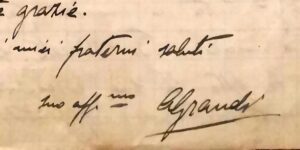 grazie.
i miei fraterni saluti
suo aff.mo AGrandi